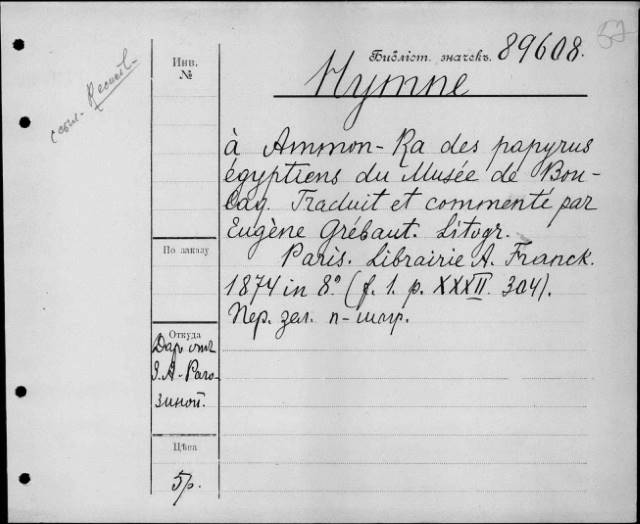 Библіот. значекъ. 89608.
Инв. №
Hymne
à Ammon-Ra des papyrus
égyptiens du Musée de Bou-
laq. Traduit et commenté par
Eugène Grébaut. Litogr.
Paris. Librairie A. Franck.
1874 in 8° (f. 1. p. XXXII. 304).
Пер. зел. п-шагр.
По заказу
Откуда
Дар отъ
З.А-Раго-
зиной.
Цѣна
5р.